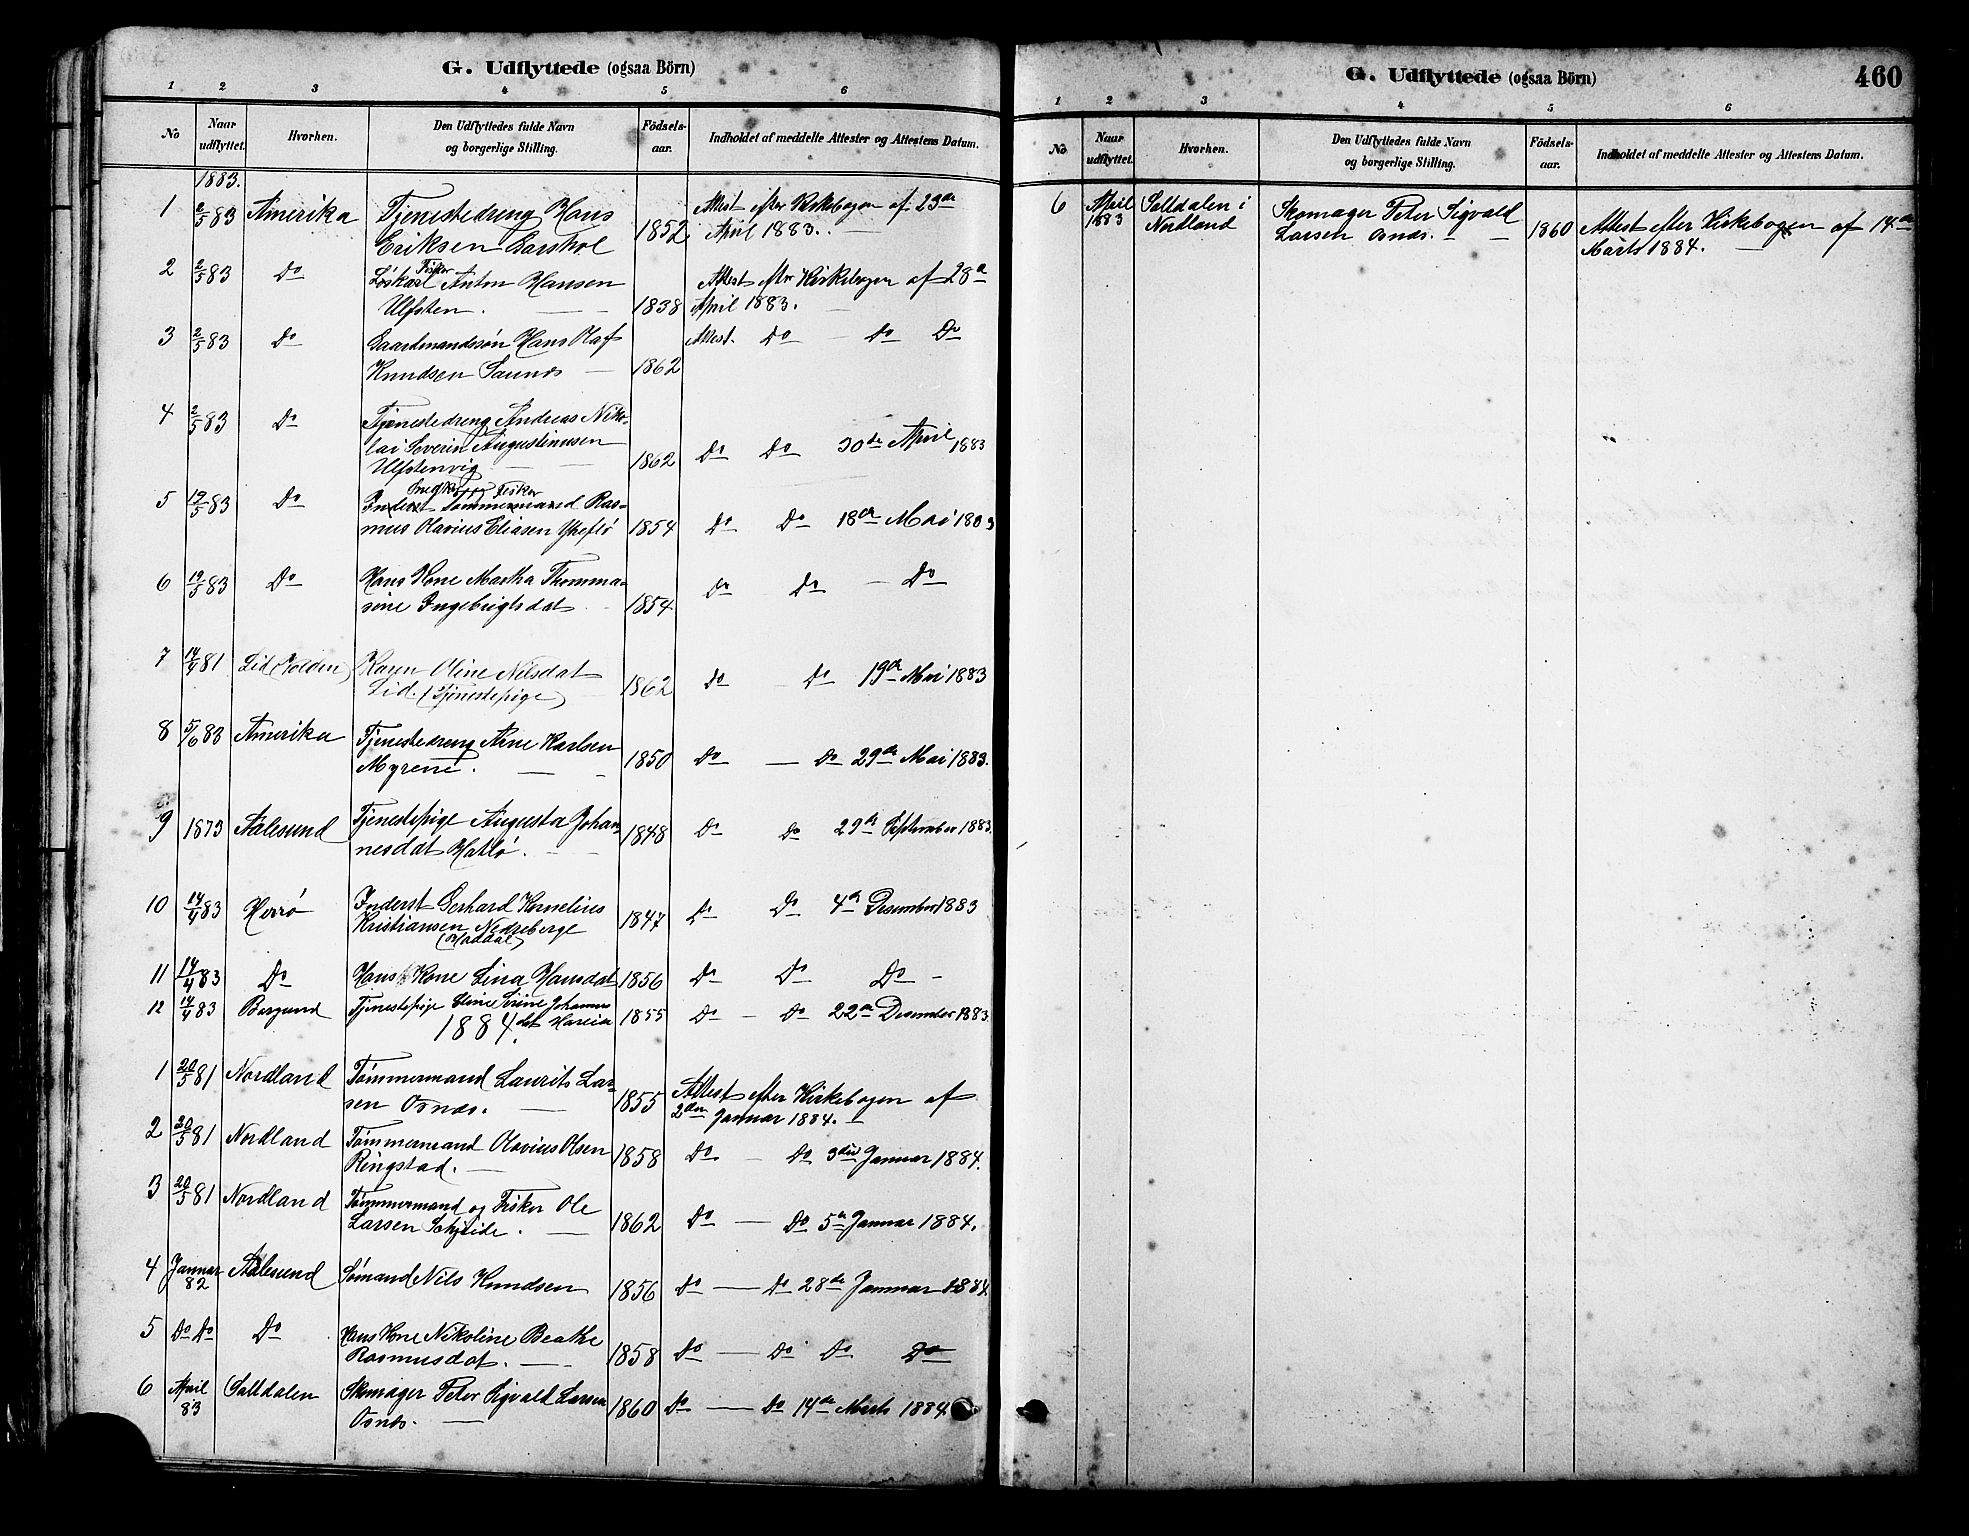 G. Udflyttede (ogsaa Börn)
1 2 3 4 5 6
No Naar udflyttet. Hvorhen. Den Udflyttedes fulde Navn og borgerlige Stilling. Födsels-aar. Indholdet af meddelte Attester og Attestens Datum.
1883.
1 2/5 83 Amerika Tjenestedreng Hans 1852 Attest efter Kirkebogen af 23de
Eriksen April 1883.
2 2/5 83 Do Løskarl Fisker Anton Hansen 1838 Attest efter Kirkebogen af 28de
Ulfsten. April 1883.
3 2/5 83 Do Gaardmandssøn Hans Olaf 1862 Attest. Do Do Do
Knudsen Saunes
4 2/5 83 Do Tjenestedreng Andreas Niko-
lai Severin Augustinusen
Ulfstenvig 1862 Do Do 30de April 1883
5 19/5 83 Do Inderst Fisker
Tømmermand Ras-
mus Olavius Eliasen 1854 Do Do 18de Mai 1883
6 19/5 83 Do Hans Kone Martha Thomma-
sine Ingebrigtsdat 1854 Do Do Do
7 14/4 81 Lid (Volden) Karen Oline Nilsdat
Lid. (Tjenestepige) 1862 Do Do 19de Mai 1883
8 5/6 83 Amerika Tjenestedreng Arne Karlsen
Myrene. 1850 Do Do 29de Mai 1883.
9 1873 Aalesund Tjenestepige Augusta Johan-
nesdat Hatlø. 1848 Do Do 29de September 1883.
10 14/4 83 Herrø Inderst Gerhard Kornelius
Kristiansen Nedreberge
(Haddal) 1847 Do Do 4de Desember 1883
11 14/4 83 Do Hans Kone Lina Hansdat 1856 Do Do Do
12 14/4 83 Borgund Tjenestepige Oline Serine Johannes
dat Hareide 1855 Do Do 22de Desember 1883.
1884.
1 20/5 81 Nordland Tømmermand Laurits Lar-
sen Osnes. 1855 Attest efter Kirkebogen af
2den Januar 1884.
2 20/5 81 Nordland Tømmermand Olavius Olsen
Ringstad. 1858 Do Do 3die Januar 1884.
3 20/5 81 Nordland Tømmermand og Fisker Ole
Larsen Schjeide. 1862 Do Do 5te Januar 1884.
4 Januar 82 Aalesund Sømand Nils Knudsen 1856 Do Do 28de Januar 1884.
5 Do Do Do Hans Kone Nikoline Beathe
Rasmusdat. 1858 Do Do Do Do
6 April 83 Saltdalen Skomager Peter Sigvald Larsen
Osnes. 1860 Do Do 14de Marts 1884
G. Udflyttede (ogsaa Börn) 460
1 2 3 4 5 6
No Naar udflyttet. Hvorhen. Den Udflyttedes fulde Navn og borgerlige Stilling. Födsels-aar. Indholdet af meddelte Attester og Attestens Datum.
6 April 1883 Salldalen i Nordland Skomager Peter Sigvald
Larsen Osnes. 1860 Attest efter Kirkebogen af 14de
Marts 1884.